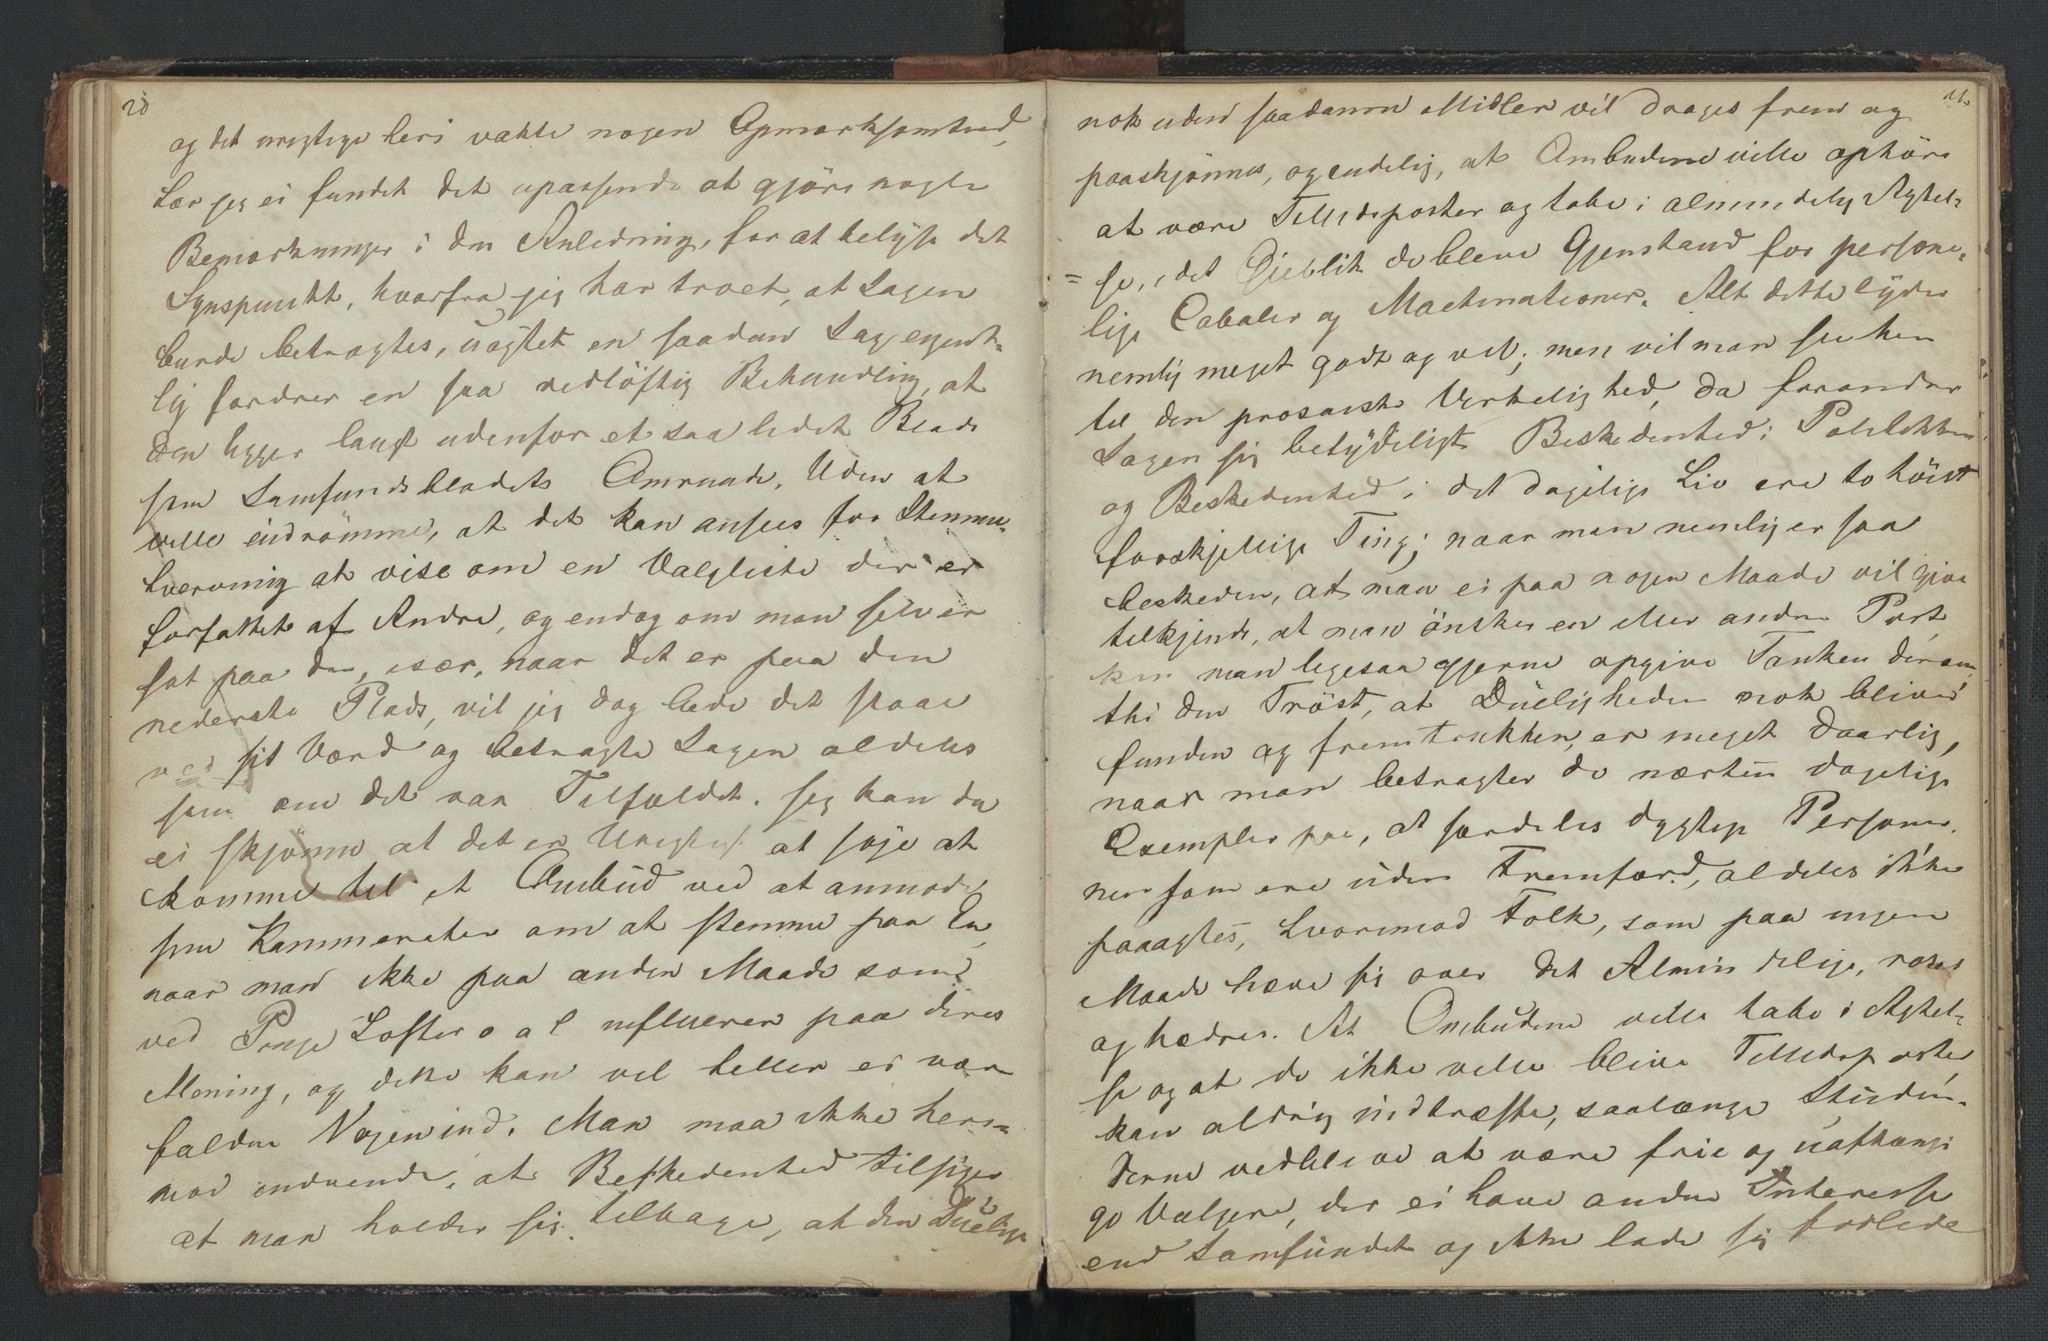 20
og det urigtige heri vakte nogen Opmærksomhed,
har jeg ei fundet det upassende at gjöre nogle
Bemærkninger i den Anledning, for at belyse det
Synspunkt, hvorfra jeg har troet, at Sagen
burde betragtes, uagtet en saadan Sag egent-
lig fordrer en saa vidlöftig Behandling, at
den ligger langt udenfor et saa lidet Blads
som Samfundsbladets Omraade. Uden at
ville indrömme, at det kan ansees for Stemme-
hvervning at vise om en Valgliste der er
forfattet af Andre, og endog om man selv er
sat paa den, især, naar det er paa den
nederste Plads, vil jeg dog lade det staae
ved sit Værd og betragte Sagen aldeles
som om det var Tilfældet. Jeg kan da
ei skjönne at det er Urigtigt at söge at
komme til et Ombud ved at anmode
sine Kammerater om at stemme paa En,
naar man ikke paa anden Maade som
ved Penge Löfter o a l influerer paa deres
Mening, og dette kan vel heller ei være
faldne Nogen ind. Man maa ikke heri-
mod indvende, at Beskedenhed tilsiger
at man holder sig tilbage, at den Duelige
nok uden saadanne Midler vil drages frem og
paaskjönnes, og endelig, at Ombudene ville ophöre
at være Tillidsposter og tabe i almindelig Agtel-
=se, i det Öieblik de bleve Gjenstand for personi-
lige Cabaler og Machinationer. Alt dette lyder
nemlig meget godt og vel; men vil man see hen
til den prosaiske Virkelighed, da forandrer
Sagen sig betydeligt. Beskedenhed i Politikken
og Beskedenhed i det daglige Liv ere to höist
forskjellige Ting; naar man nemlig er saa
beskeden, at man ei paa nogen Maade vil give
tilkjende, at man önsker en eller anden Post
kan man ligesaa gjerne opgive Tanken derom,
thi den Tröst, at Dueligheden nok bliver
funden og fremtrukken, er meget daarlig,
naar man betragter de næsten daglige
Exempler paa, at særdeles dygtige Personer,
naar som ere uden Fremfærd, aldeles ikke
paaagtes, hvorimod Folk, som paa ingen
Maade hæve sig over det Almindelige, roses
og hædres. At Ombudene ville tabe i Agtel-
se og at de ikke ville blive Tillidsposter,
kan aldrig indtræffe, saalænge Studen-
terne vedblive at være frie og uafhængi
ge Vælgere, der ei have anden Interesse
end Samfundet og ikke lade sig forlede